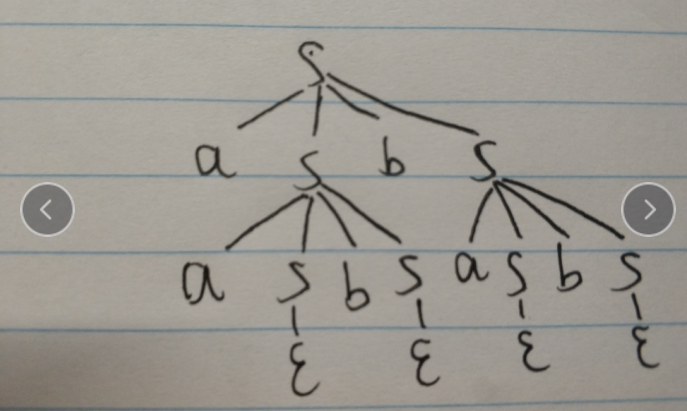 S
a S b S
a S b S a S b S
ε ε ε ε